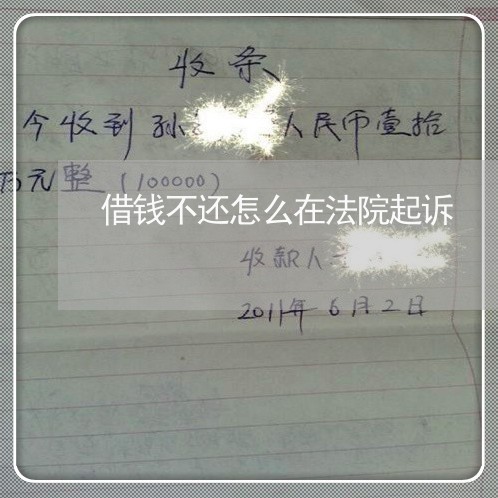 收条
今收到孙 人民币壹拾
万元整(100000)
借钱不还怎么在法院起诉
收款人
2011年6月2日